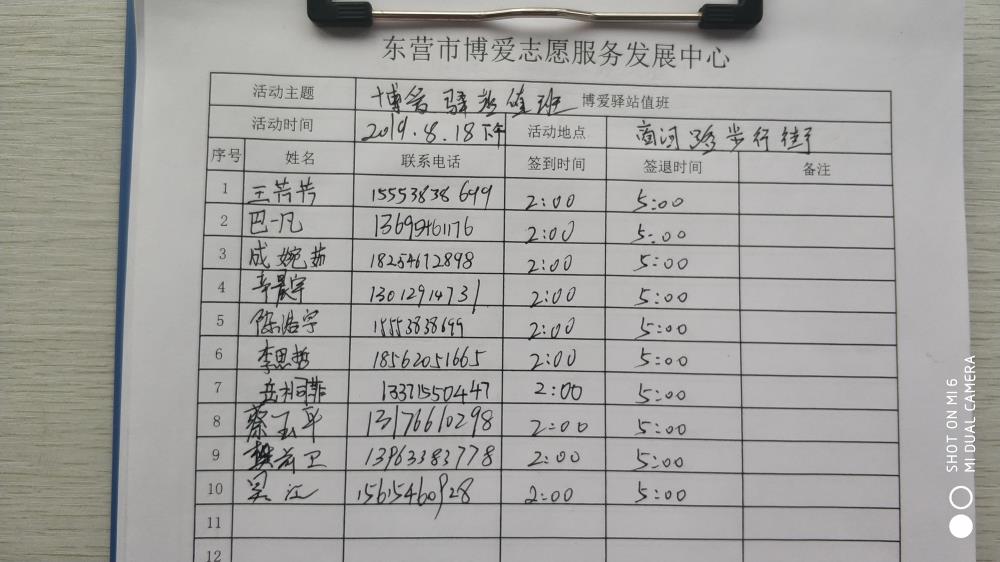 东营市博爱志愿服务发展中心
活动主题 博爱驿站值班 博爱驿站值班
活动时间 2019.8.18下午 活动地点 商河路步行街
序号 姓名 联系电话 签到时间 签退时间 备注
1 王芳芳 15553838699 2:00 5:00
2 巴一凡 2:00 5:00
3 成婉茹 18254672898 2:00 5:00
4 辛晨宇 13012914731 2:00 5:00
5 陈浩宇 15553838699 2:00 5:00
6 李思哲 18562051665 2:00 5:00
7 13371550447 2:00 5:00
8 蔡玉平 13176610298 2:00 5:00
9 前卫 13963383778 2:00 5:00
10 吴江 15615460928 2:00 5:00
11
12
SHOT ON MI 6
MI DUAL CAMERA